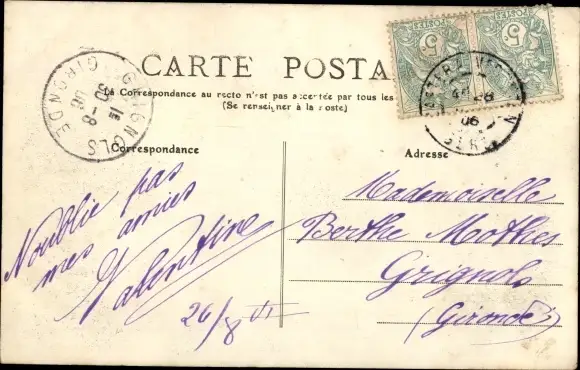 CARTE POSTA
La Correspondance au recto n'est pas acceptée par tous les
(Se renseigner à la Poste)
GRIGNOLS
GIRONDE
30-8
06
POSTES
5c
POSTES
5c
06
GERS
Correspondance
Noublie pas
mes amies
Valentine
26/8 VI
Adresse
Mademoiselle
Berthe Mothes
Grignols
(Gironde)